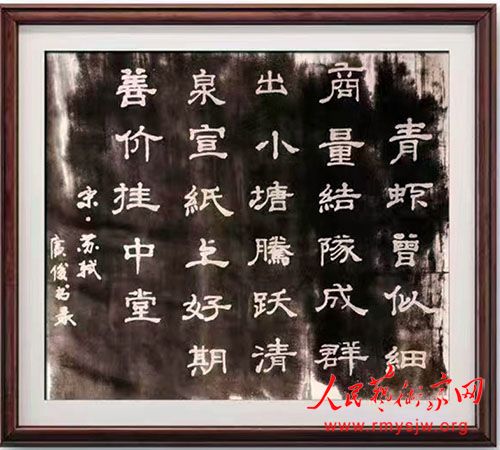 青虾曾似细
商量結隊成群
出小塘騰跃清
泉宣紙上好期
善价挂中堂
宋·苏轼
廣俊书录
人民藝術家网
www.rmysjw.org